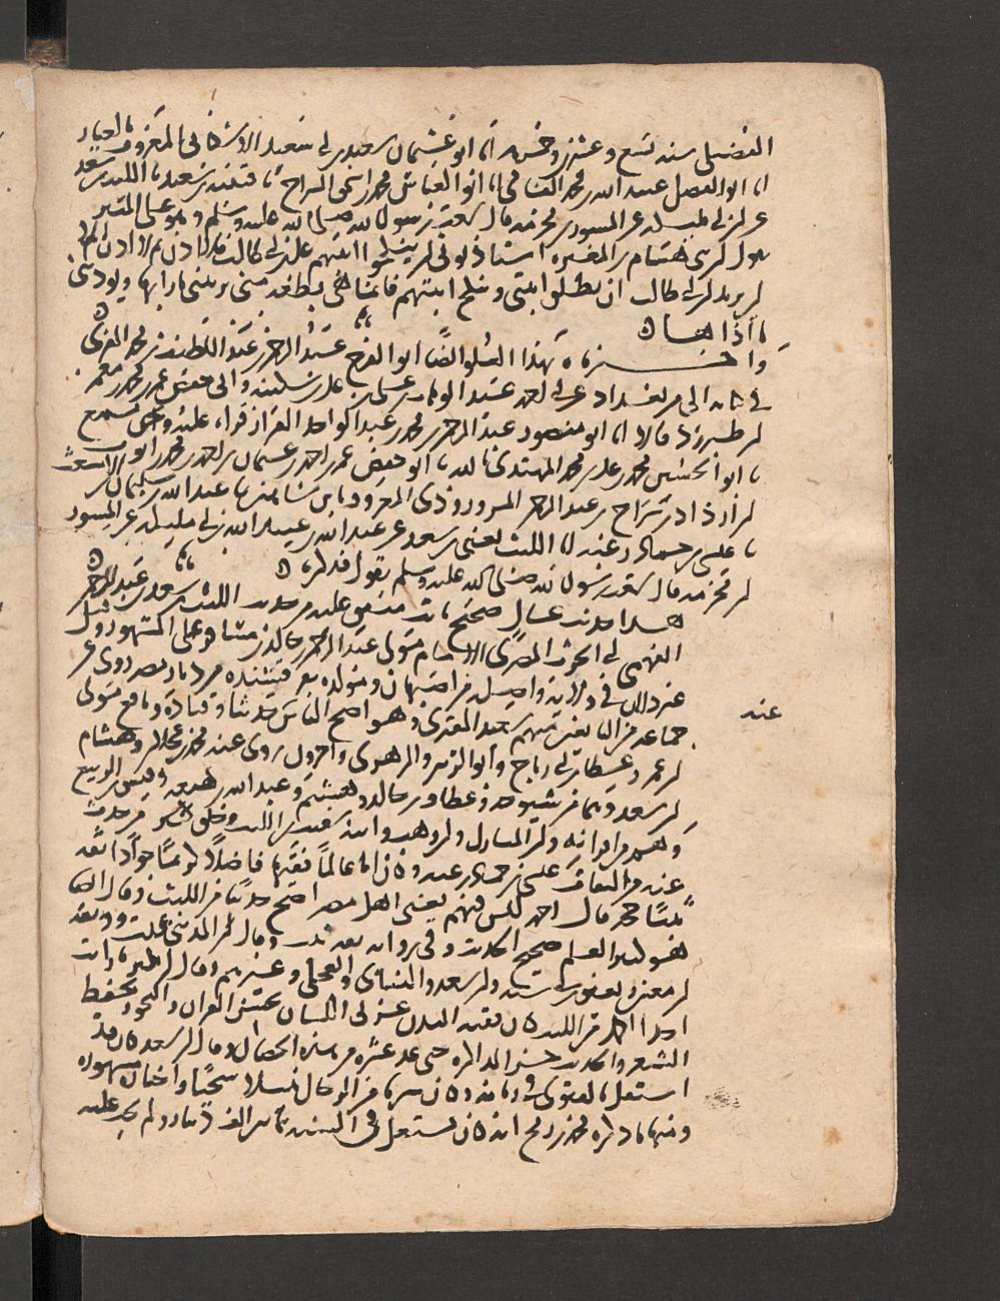 الفضيلي سنه تسع وعشرين وخمس مه انا ابو عثمان سعيد بن ابي سعيد المعروف بالعيار
انا ابو الفضل عبيد الله بن محمد الفامي انا ابو العباس محمد بن اسحق السراج نا قتيبه بن سعيد نا الليث بن سعد
عن ابن ابي مليكه عن المسور بن مخرمه قال سمعت رسول الله صلى الله عليه وسلم وهو على المنبر
يقول ان بني هشام بن المغيره استاذنوني ان ينكحوا ابنتهم علي بن ابي طالب فلا اذن ثم لا اذن الا
ان يريد ابن ابي طالب ان يطلق ابنتي وينكح ابنتهم فانما هي بضعه مني يريبني ما رابها ويوذيني
ما اذاها ه
واخبرناه بهذا العلو ايضا ابو الفرج عبد الرحمن بن عبد اللطيف بن محمد المقرئ
في كتابه الي من بغداد عن ابي احمد عبد الوهاب بن علي بن علي بن سكينه وابي حفص عمر بن محمد بن معمر
ابن طبرزذ قالا انا ابو منصور عبد الرحمن بن محمد بن عبد الواحد القزاز قراه عليه ونحن نسمع
نا ابو الحسين محمد بن علي بن محمد المهتدي بالله نا ابو حفص عمر بن احمد بن عثمان بن احمد بن محمد بن ايوب
ابن ازداذ بن سراج بن عبد الرحمن المروروذي المعروف بابن شاهين نا عبد الله بن سليمان بن الاشعث
نا عيسى بن حماد زغبه انا الليث يعني بن سعد عن عبد الله بن عبيد الله بن ابي مليكه عن المسور
ابن مخرمه قال سمعت رسول الله صلى الله عليه وسلم يقول فذكره ه
هذا حديث عال صحيح ثابت متفق عليه من حديث الليث بن سعد بن عبد الرحمن
الفهمي ابي الحرث المصري الامام مولى عبد الرحمن بن خالد بن مسافر على المشهور وقيل
غير ذلك في ولايه واصله من اصبهان ومولده بقرقشنده من بلاد مصر روى عن
جماعه من التابعين منهم سعيد المقبري وهو اصح الناس حديثا وقتاده ونافع مولى
ابن عمر وعطا بن ابي رباح وابو الزبير والزهري واخرون روى عنه محمد بن عجلان وهشام
ابن سعد وهما من شيوخه وعطاف بن خالد وهشيم وعبد الله بن لهيعه وقيس بن الربيع
وهم من اقرانه وابن المبارك وابن وهب وابنه شعيب بن الليث وخلق
عنه من الثقات عيسى بن حماد زغبه وكان اماما عالما فقيها فاضلا كريما جوادا ثقه
ثبتا حجه قال احمد ليس فيهم يعني اهل مصر اصح حديثا من الليث وقال ايضا
هو كثير العلم صحيح الحديث وفي روايه ثقه ثبت وقال ابن المديني ثبت ووثقه
ابن معين ويعقوب بن شيبه وابن سعد والنسائي والعجلي وغيرهم وقال ابن بكير ما رايت
احدا اكمل من الليث كان فقيه البدن عربي اللسان يحسن القران والنحو ويحفظ
الشعر والحديث حسن المذاكره حتى عد عشره من هذه الخصال وقال ابن سعد كان قد
استقل بالفتوى في زمانه وكان سريا من الرجال نبيلا سخيا واخباره مشهوره
ومنها ما ذكره محمد بن رمح انه كان يستغل في السنه ثمانين الف دينار ولم تجب عليه
عنه